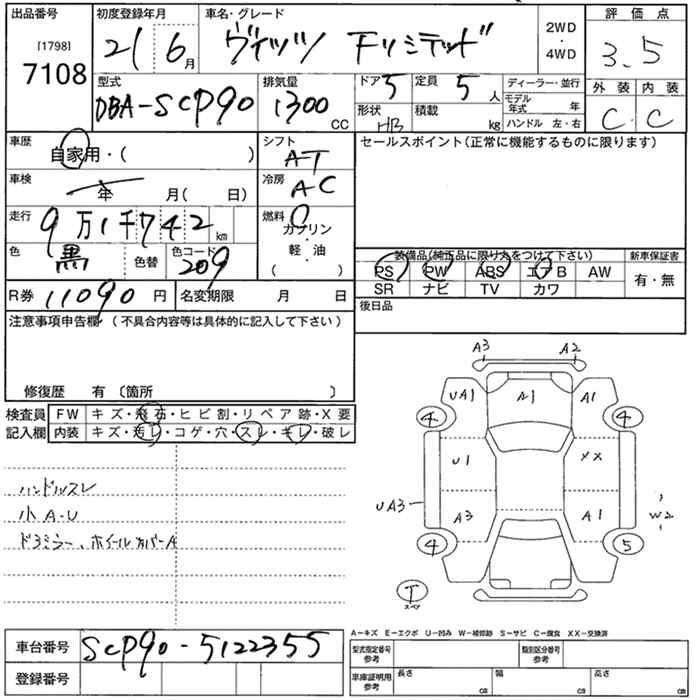 出品番号 初度登録年月 車名・グレード 2WD・4WD 評価点
[1798] 7108 21 6月 ヴィッツ Fリミテッド 3.5
型式 排気量 ドア 5 定員 5人 ディーラー・並行 外装 内装
DBA-SCP90 1300 CC 形状 HB 積載 kg モデル年式 年 C C
ハンドル 左・右
車歴 自家用・( ) シフト AT セールスポイント(正常に機能するものに限ります)
車検 年 月( 日) 冷房 AC
走行 9万1千742km 燃料 ガソリン・軽・油 ( )
色 黒 色替 色コード 209 装備品(純正品に限り丸をつけて下さい) 新車保証書
PS PW ABS エアB AW 有・無
R券 11090円 名変期限 月 日 SR ナビ TV カワ
注意事項申告欄(不具合内容等は具体的に記入して下さい) 後日品
修復歴 有 〔箇所 〕
検査員 FW キズ・飛石・ヒビ割・リペア跡・X要
記入欄 内装 キズ・汚レ・コゲ・穴・スレ・キレ・破レ
ハンドルスレ
小A・U
ドアミラー、ホイールカバーA
A3 A2
UA1 A1 A1
4 4
U1 XX
UA3 A3 A1 W2
4 5
T スペア
A−キズ E−エクボ U−凹み W−補修跡 S−サビ C−腐食 XX−交換済
車台番号 SCP90-5122355 型式指定番号 参考 類別区分番号 参考
登録番号 車庫証明用 参考 長さ cm 幅 cm 高さ cm